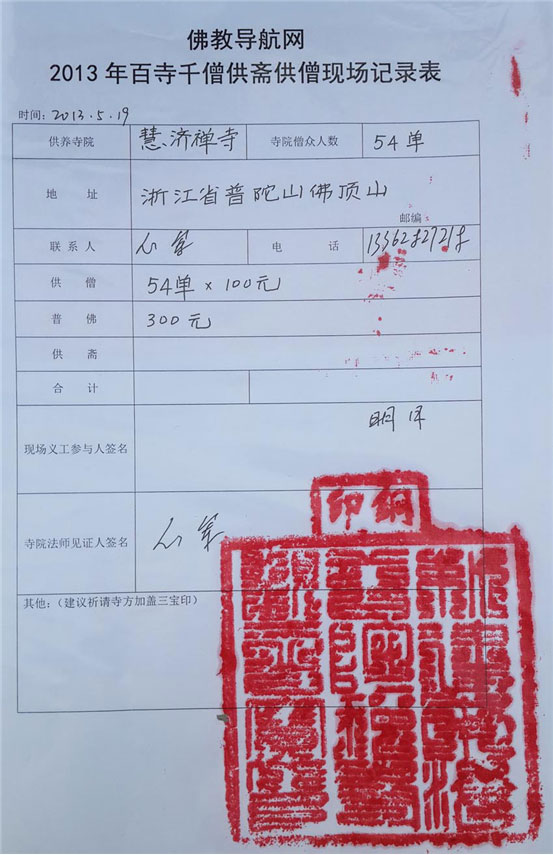 佛教导航网
2013年百寺千僧供斋供僧现场记录表
时间:2013.5.19
供养寺院 慧济禅寺 寺院僧众人数 54单
地 址 浙江省普陀山佛顶山
邮编
联系人 电 话
供 僧 54单×100元
普 佛 300元
供 斋
合 计
现场义工参与人签名
寺院法师见证人签名
其他:(建议祈请寺方加盖三宝印)